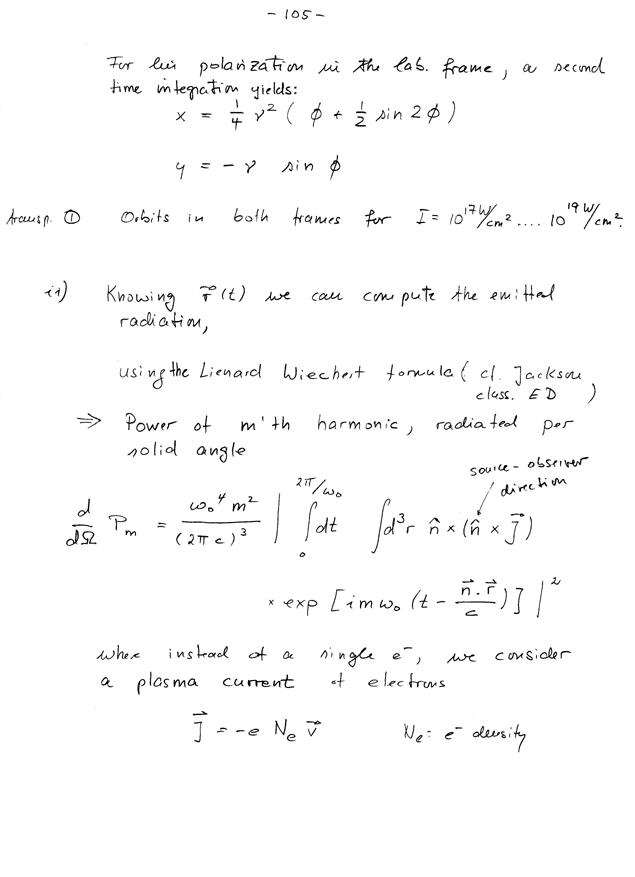 - 105 -
For lin polarization in the lab. frame, a second
time integration yields:
x = 1/4 γ² ( ϕ + 1/2 sin 2ϕ )
y = - γ sin ϕ
transp. ① Orbits in both frames for I = 10¹⁷ W/cm² .... 10¹⁹ W/cm².
ii) Knowing r⃗(t) we can compute the emitted
radiation,
using the Lienard Wiechert formula ( cf. Jackson
class. ED )
⇒ Power of m'th harmonic, radiated per
solid angle
source - observer
direction
d/dΩ P_m = ω₀⁴ m² / (2πc)³ | ∫₀^{2π/ω₀} dt ∫d³r n̂ × (n̂ × J⃗)
× exp [imω₀ (t - n⃗.r⃗/c)] |²
where instead of a single e⁻, we consider
a plasma current of electrons
J⃗ = -e Nₑ v⃗ Nₑ: e⁻ density